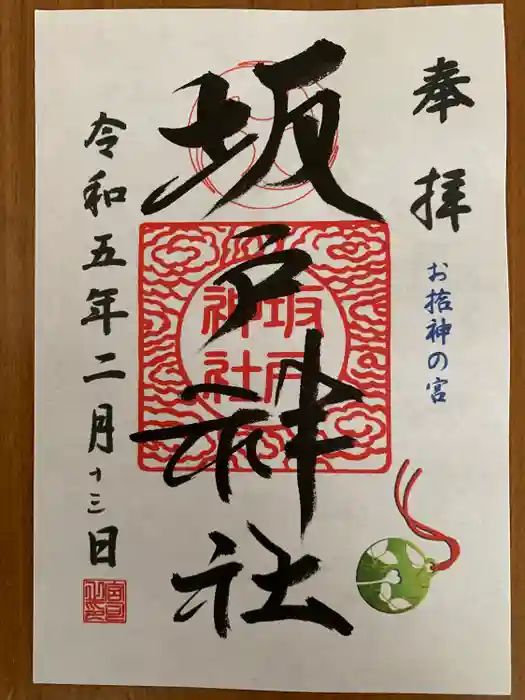 奉拝
お捨神の宮
坂戸神社
坂戸
神社
令和五年二月十三日